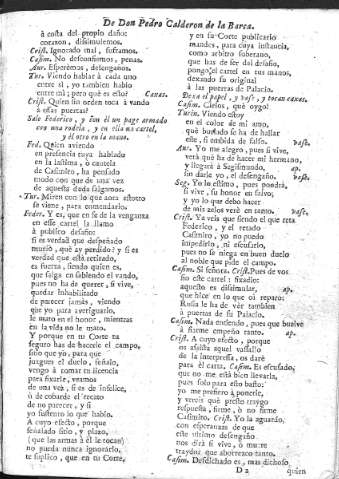 De Don Pedro Calderon de la Barca.
à costa del propio daño:
corazon, disimulemos.
Crist. Ignorado mal, suframos.
Casim. No desconfiemos, penas.
Aur. Esperèmos, desengaños.
Tur. Viendo hablar à cada uno
entre sì, yo tambien hablo
entre mì; pero què es esto? Caxas.
Crist. Quien sin orden toca à vando
à essas puertas?
Sale Federico, y con èl un page armado
con una rodela, y en ella un cartel,
y èl otro en la mano.
Fed. Quien aviendo
en presencia tuya hablado
en la lastima, ò cautela
de Casimiro, ha pensado
modo con que de una vez
de aquesta duda salgamos.
Tur. Miren con lo que aora
se viene, para contentarlo.
Feder. Y es, que en fe de la venganza
en esse cartel la llamo
à publico desafio:
si es verdad que despeñado
muriò, què ay perdido? y si es
verdad que està retirado,
es fuerza, siendo quien es,
que salga en sabiendo el vando,
pues no ha de querer, si vive,
quedar inhabilitado
de parecer jamàs, viendo
que yo para averiguarlo,
le mato en el honor, mientras
en la vida no le mato.
Y porque en tu Corte es
seguro has de hacerle el campo,
sitio que yo, para que
juzgues el duelo, señalo,
vengo à tomar tu licencia
para fixarle, veamos
de una vez, si es de infelice,
ò de cobarde el recato
de no parecer, y si
yo sustento lo que hablo.
A cuyo efecto, porque
señalado sitio, y plazo,
(que las armas à èl le tocan)
no pueda nunca ignorarlo,
te suplico, que en tu Corte,
y en su Corte publicarlo
mandes, para cuya instancia,
como arbitro soberano,
que has de ser del desafio,
pongo el cartel en tus manos,
dexando su original
à las puertas de Palacio.
Dexa el papel, y vase, y tocan caxas.
Casim. Cielos, què oygo!
Turin. Viendo estoy
en el color de mi amo,
què buscado se ha de hallar
este, si embida de falso. vase.
Aur. Yo me alegro, pues si vive,
verà què ha de hacer mi hermano,
y llegarà à Segismundo, ap.
sin darle yo, el desengaño. vase.
Seg. Yo lo estimo, pues pondrà,
si vive, su honor en salvo;
y yo lo que debo hacer
de mis zelos verè en tanto. vase.
Crist. Ya veis que siendo el que reta
Federico, y el retado
Casimiro, yo no puedo
impedirlo, ni escusarlo,
pues no se niega en buen duelo
al noble que pide el campo.
Casim. Sì señora. Crist. Pues de vos
fio este cartel: fixadle:
aquesto es disimular, ap.
que hice en lo que oì reparo:
Rusia le ha de vèr tambien
à puertas de su Palacio.
Casim. Nada entiendo, pues que buelve
à fiarme empeño tanto. ap.
Crist. A cuyo efecto, porque
no assista aquel vassallo
de la interpressa, os darè
para èl carta. Casim. Es escusado,
que no me està bien llevarla,
pues solo para esto basto:
yo me prefiero à ponerle,
y vereis què presto traygo
respuesta, firme, ò no firme
Casimiro. Crist. Yo la aguardo,
con esperanza de que
este ultimo desengaño
nos dirà si vive, ò muere
traydor que aborrezco tanto.
Casim. Desdichado es, mas dichoso,
D 2 quien